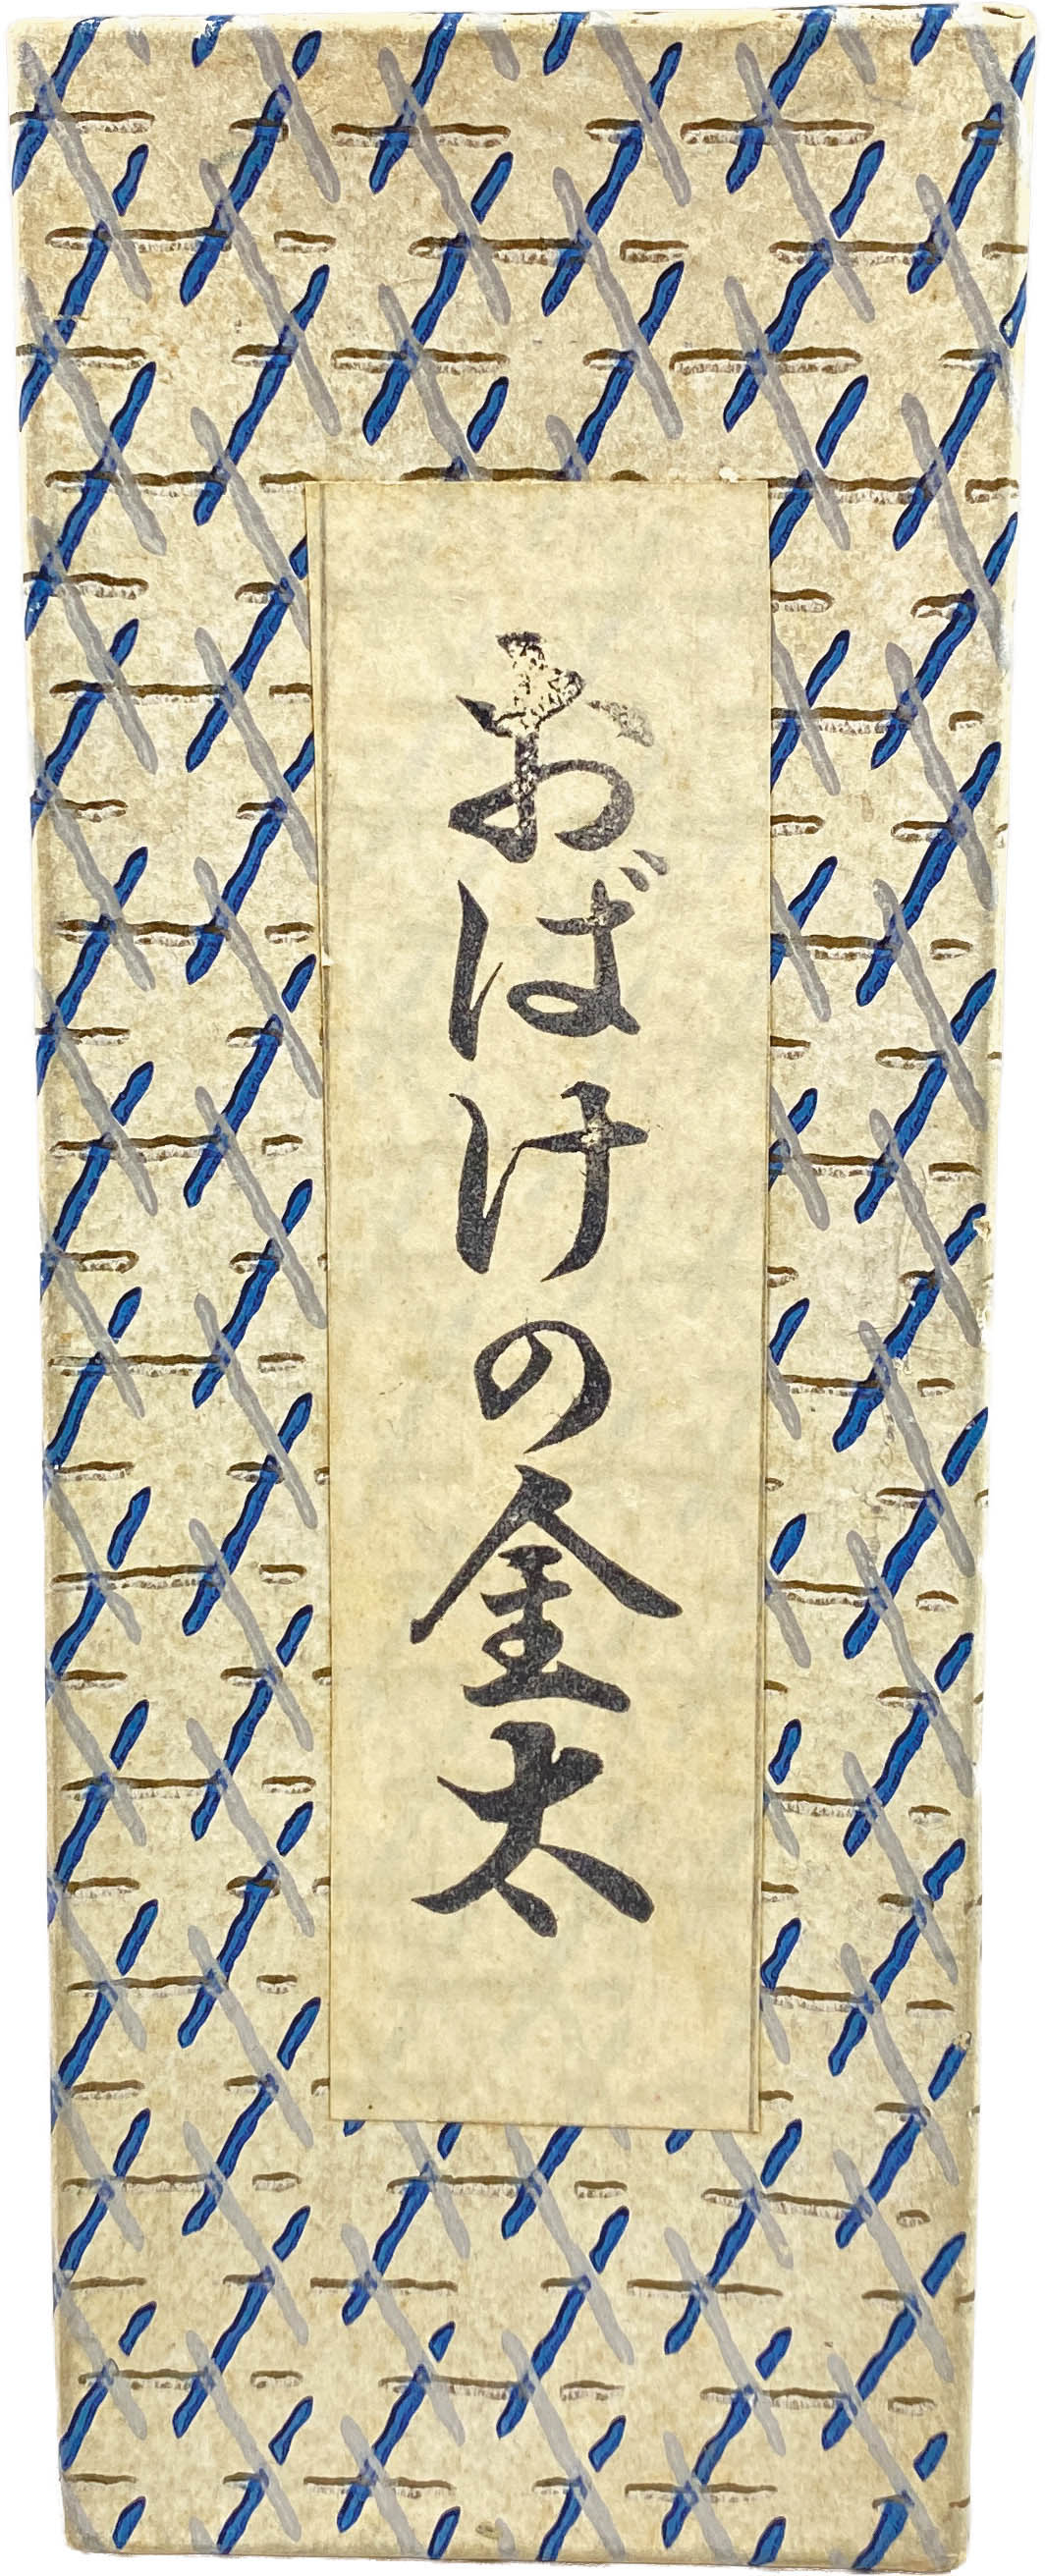 おばけの金太